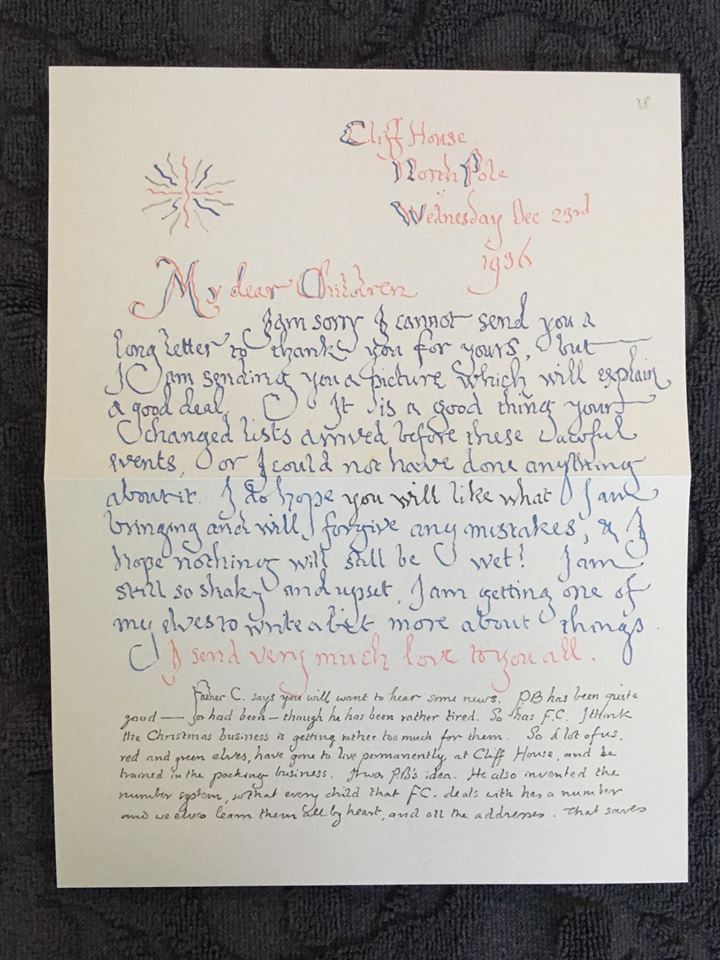 38
Cliff House
North Pole
Wednesday Dec 23rd
1936
My dear Children
I am sorry I cannot send you a
long letter to thank you for yours, but
I am sending you a picture which will explain
a good deal. It is a good thing your
changed lists arrived before these awful
events, or I could not have done anything
about it. I do hope you will like what I am
bringing and will forgive any mistakes, & I
hope nothing will still be wet! I am
still so shaky and upset, I am getting one of
my elves to write a bit more about things.
I send very much love to you all.
Father C. says you will want to hear some news. PB has been quite
good — or had been — though he has been rather tired. So has F.C. I think
the Christmas business is getting rather too much for them. So a lot of us,
red and green elves, have gone to live permanently at Cliff House, and be
trained in the packing business. It was PB's idea. He also invented the
number system, so that every child that F.C. deals with has a number
and we elves learn them all by heart, and all the addresses. That saves